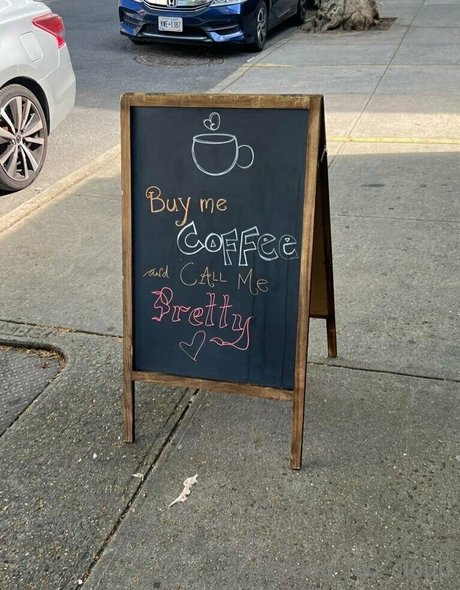 Buy me
COFFEE
and CALL Me
Pretty